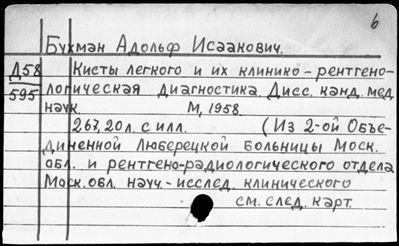 6
Бухман Адольф Исаакович.
Д58 Кисты легкого и их клинико-рентгено-
595 логическая диагностика. Дисс. канд. мед.
наук. М, 1958.
267, 20л. с илл. (Из 2-ой Объе-
диненной Люберецкой больницы Моск.
обл. и рентгено-радиологического отдела
Моск.обл. науч.-исслед. клинического
см. след. карт.